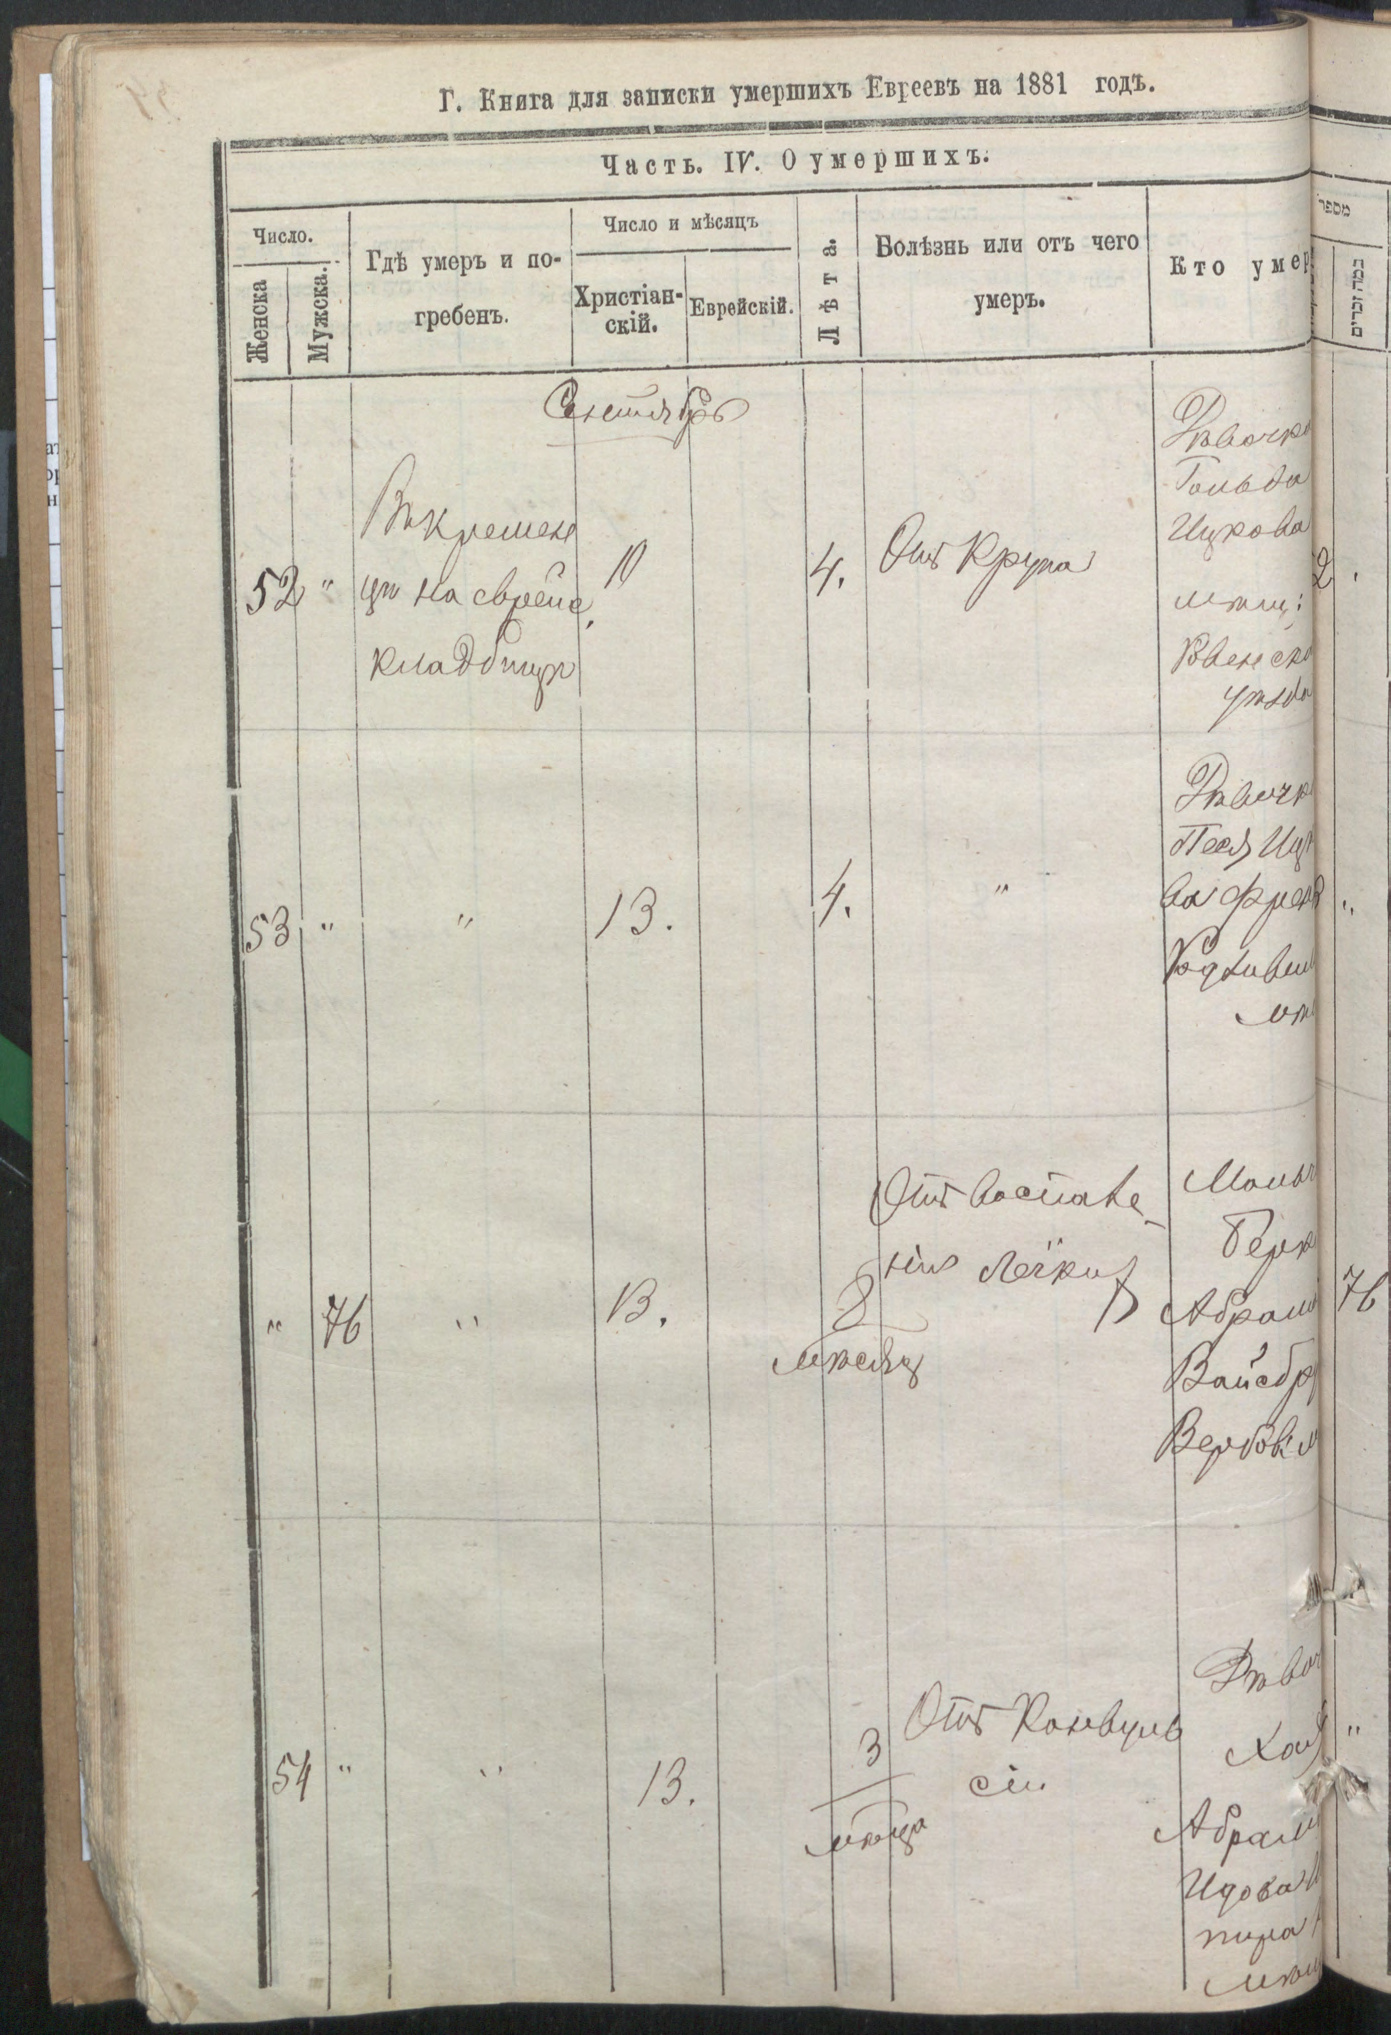 Г. Книга для записки умершихъ Евреевъ на 1881 годъ.
Часть. IV. О умершихъ.
Число.
Женска
Мужска.
Гдѣ умеръ и по-
гребенъ.
Число и мѣсяцъ
Христіан-
скій.
Еврейскій.
Лѣта.
Болѣзнь или отъ чего
умеръ.
Кто умер
מספר
כמה זכרים
Сентябрь
52 "
Въ Кремен
цѣ на еврейс.
кладбищѣ
10
4.
Отъ Крупа
Дѣвочка
Гольда
Ицкова
мѣщ:
Ровенска
уѣзда
53 " " 13. 4. "
Дѣвочк
Песя Иц
ва Френ
мѣ
" 76 " 13.
8
мѣсяц
Отъ воспале
нія легких
Мальч
Берк
Абрам
Вайсбр
Вербов
76
54 " " 13.
3
мѣсца
Отъ Конвуль
сіи
Дѣвоч
Хая
Абрам
пира
мѣщ
"